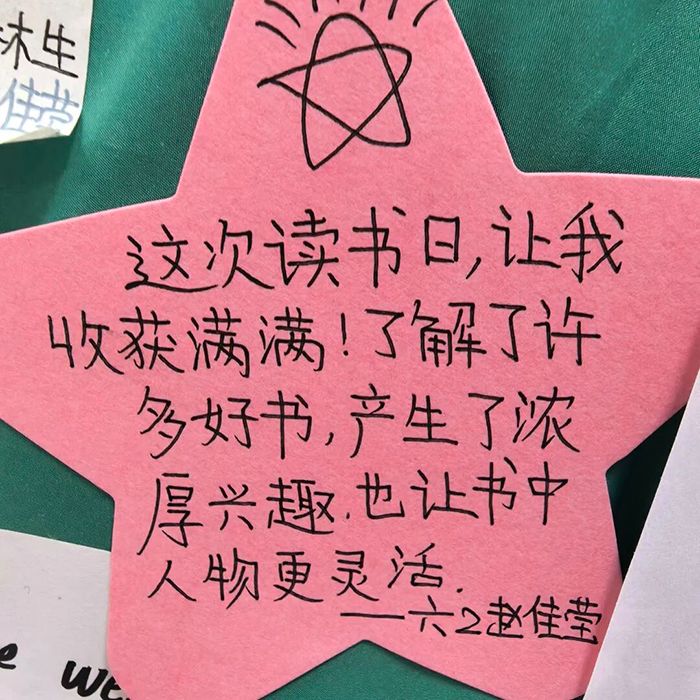 林生
佳莹
这次读书日,让我
收获满满!了解了许
多好书,产生了浓
厚兴趣.也让书中
人物更灵活.
——六2赵佳莹
e we